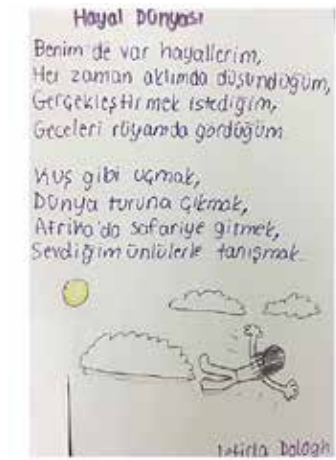 Hayal Dünyası
Benim de var hayallerim,
Her zaman aklımda düşündüğüm,
Gerçekleştirmek istediğim,
Geceleri rüyamda gördüğüm
Kuş gibi uçmak,
Dünya turuna çıkmak,
Afrika'da safariye gitmek,
Sevdiğim ünlülerle tanışmak